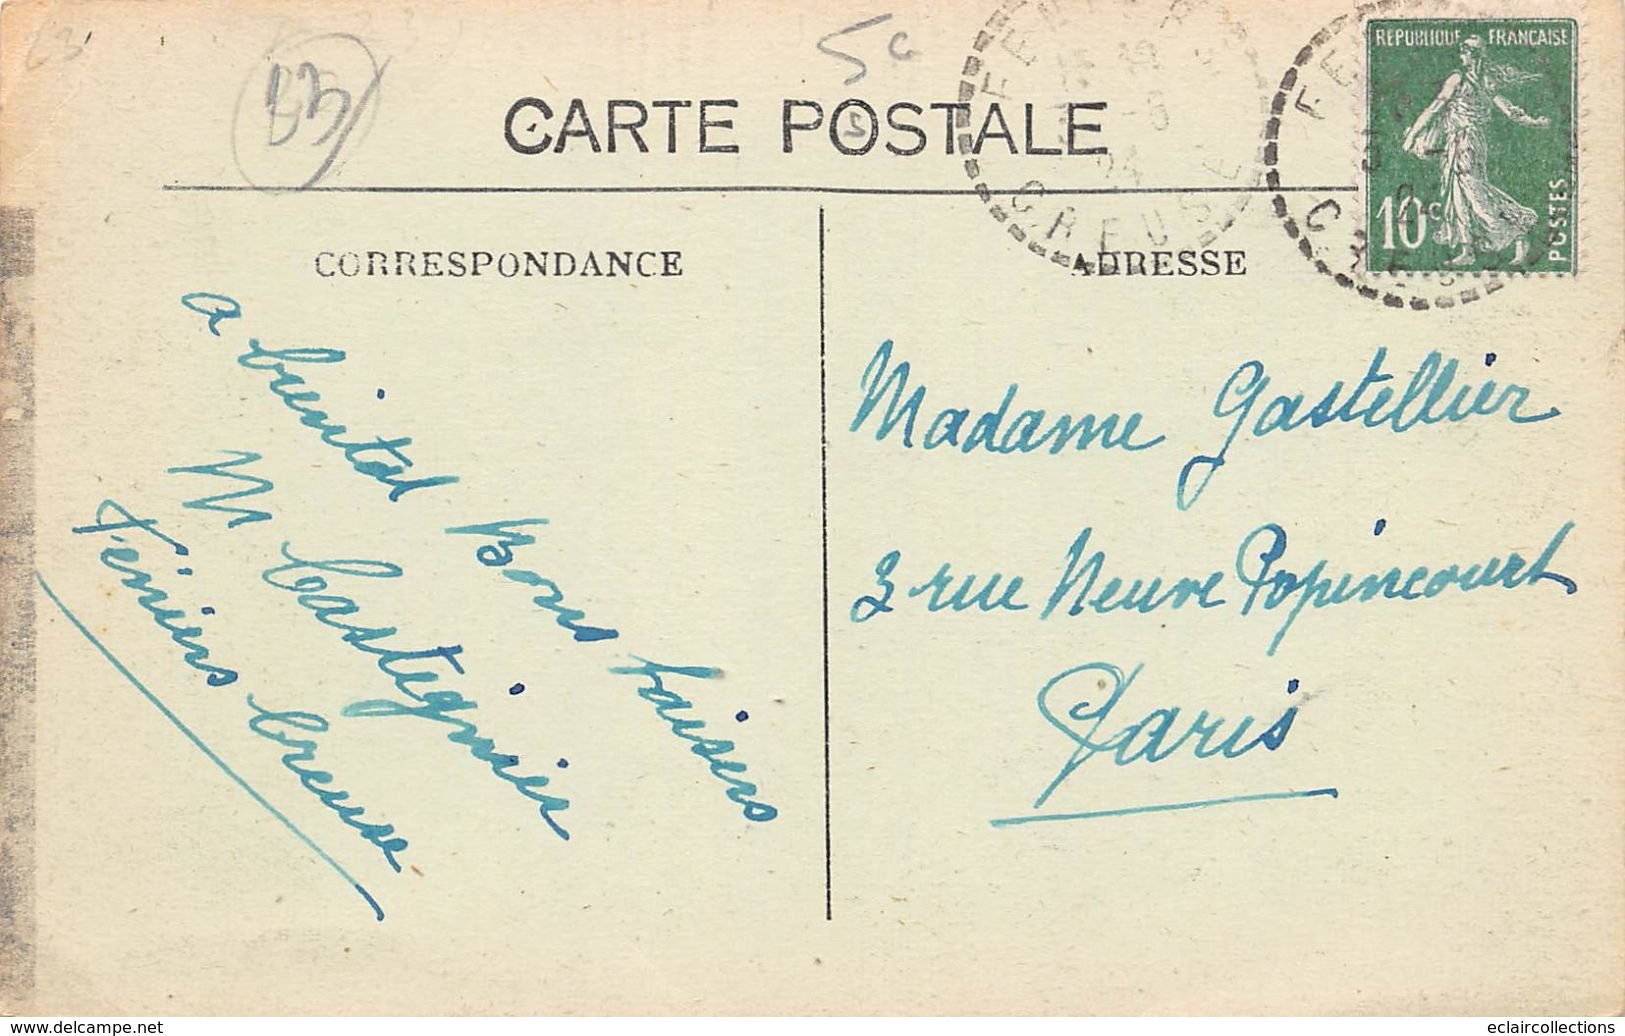 CARTE POSTALE
CORRESPONDANCE
ADRESSE
REPUBLIQUE FRANÇAISE
10c
POSTES
CREUSE
a bientot Bons baisers
M Castagnier
Feniers Creuse
Madame Gastellier
3 rue Neuve Popincourt
Paris
www.delcampe.net
eclaircollections